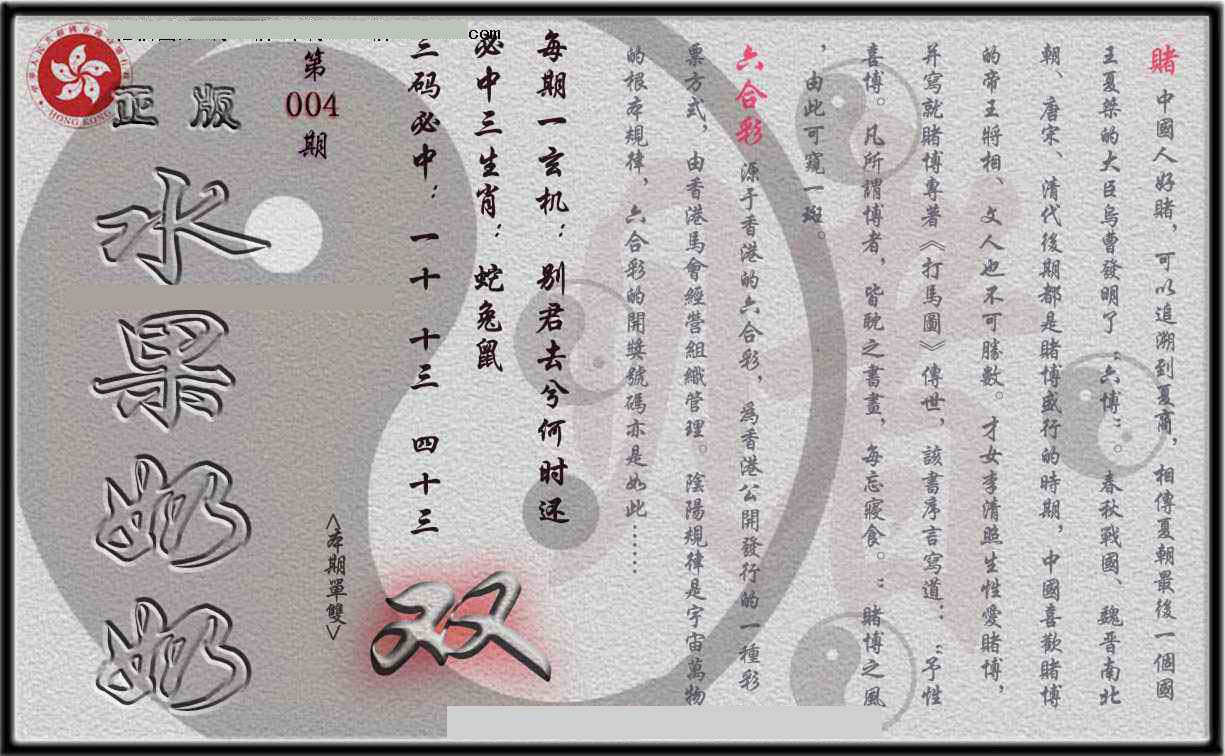 賭 中國人好賭，可以追溯到夏商，相傳夏朝最後一個國
王夏桀的大臣烏曹發明了“六博”。春秋戰國、魏晋南北
朝、唐宋、清代後期都是賭博盛行的時期，中國喜歡賭博
的帝王將相、文人也不可勝數。才女李清照生性愛賭博，
并寫就賭博專著《打馬圖》傳世，該書序言寫道：“予性
喜博。凡所謂博者，皆耽之書畫，每忘寢食。”賭博之風
，由此可窺一斑。
六合彩 源于香港的六合彩，爲香港公開發行的一種彩
票方式，由香港馬會經營組織管理。陰陽規律是宇宙萬物
的根本規律，六合彩的開獎號碼亦是如此……
每期一玄机：别君去兮何时还
必中三生肖：蛇兔鼠
三码必中：一十 十三 四十三
第
004
期
<本期單雙>
双
正版
水果奶奶
HONG KONG
com